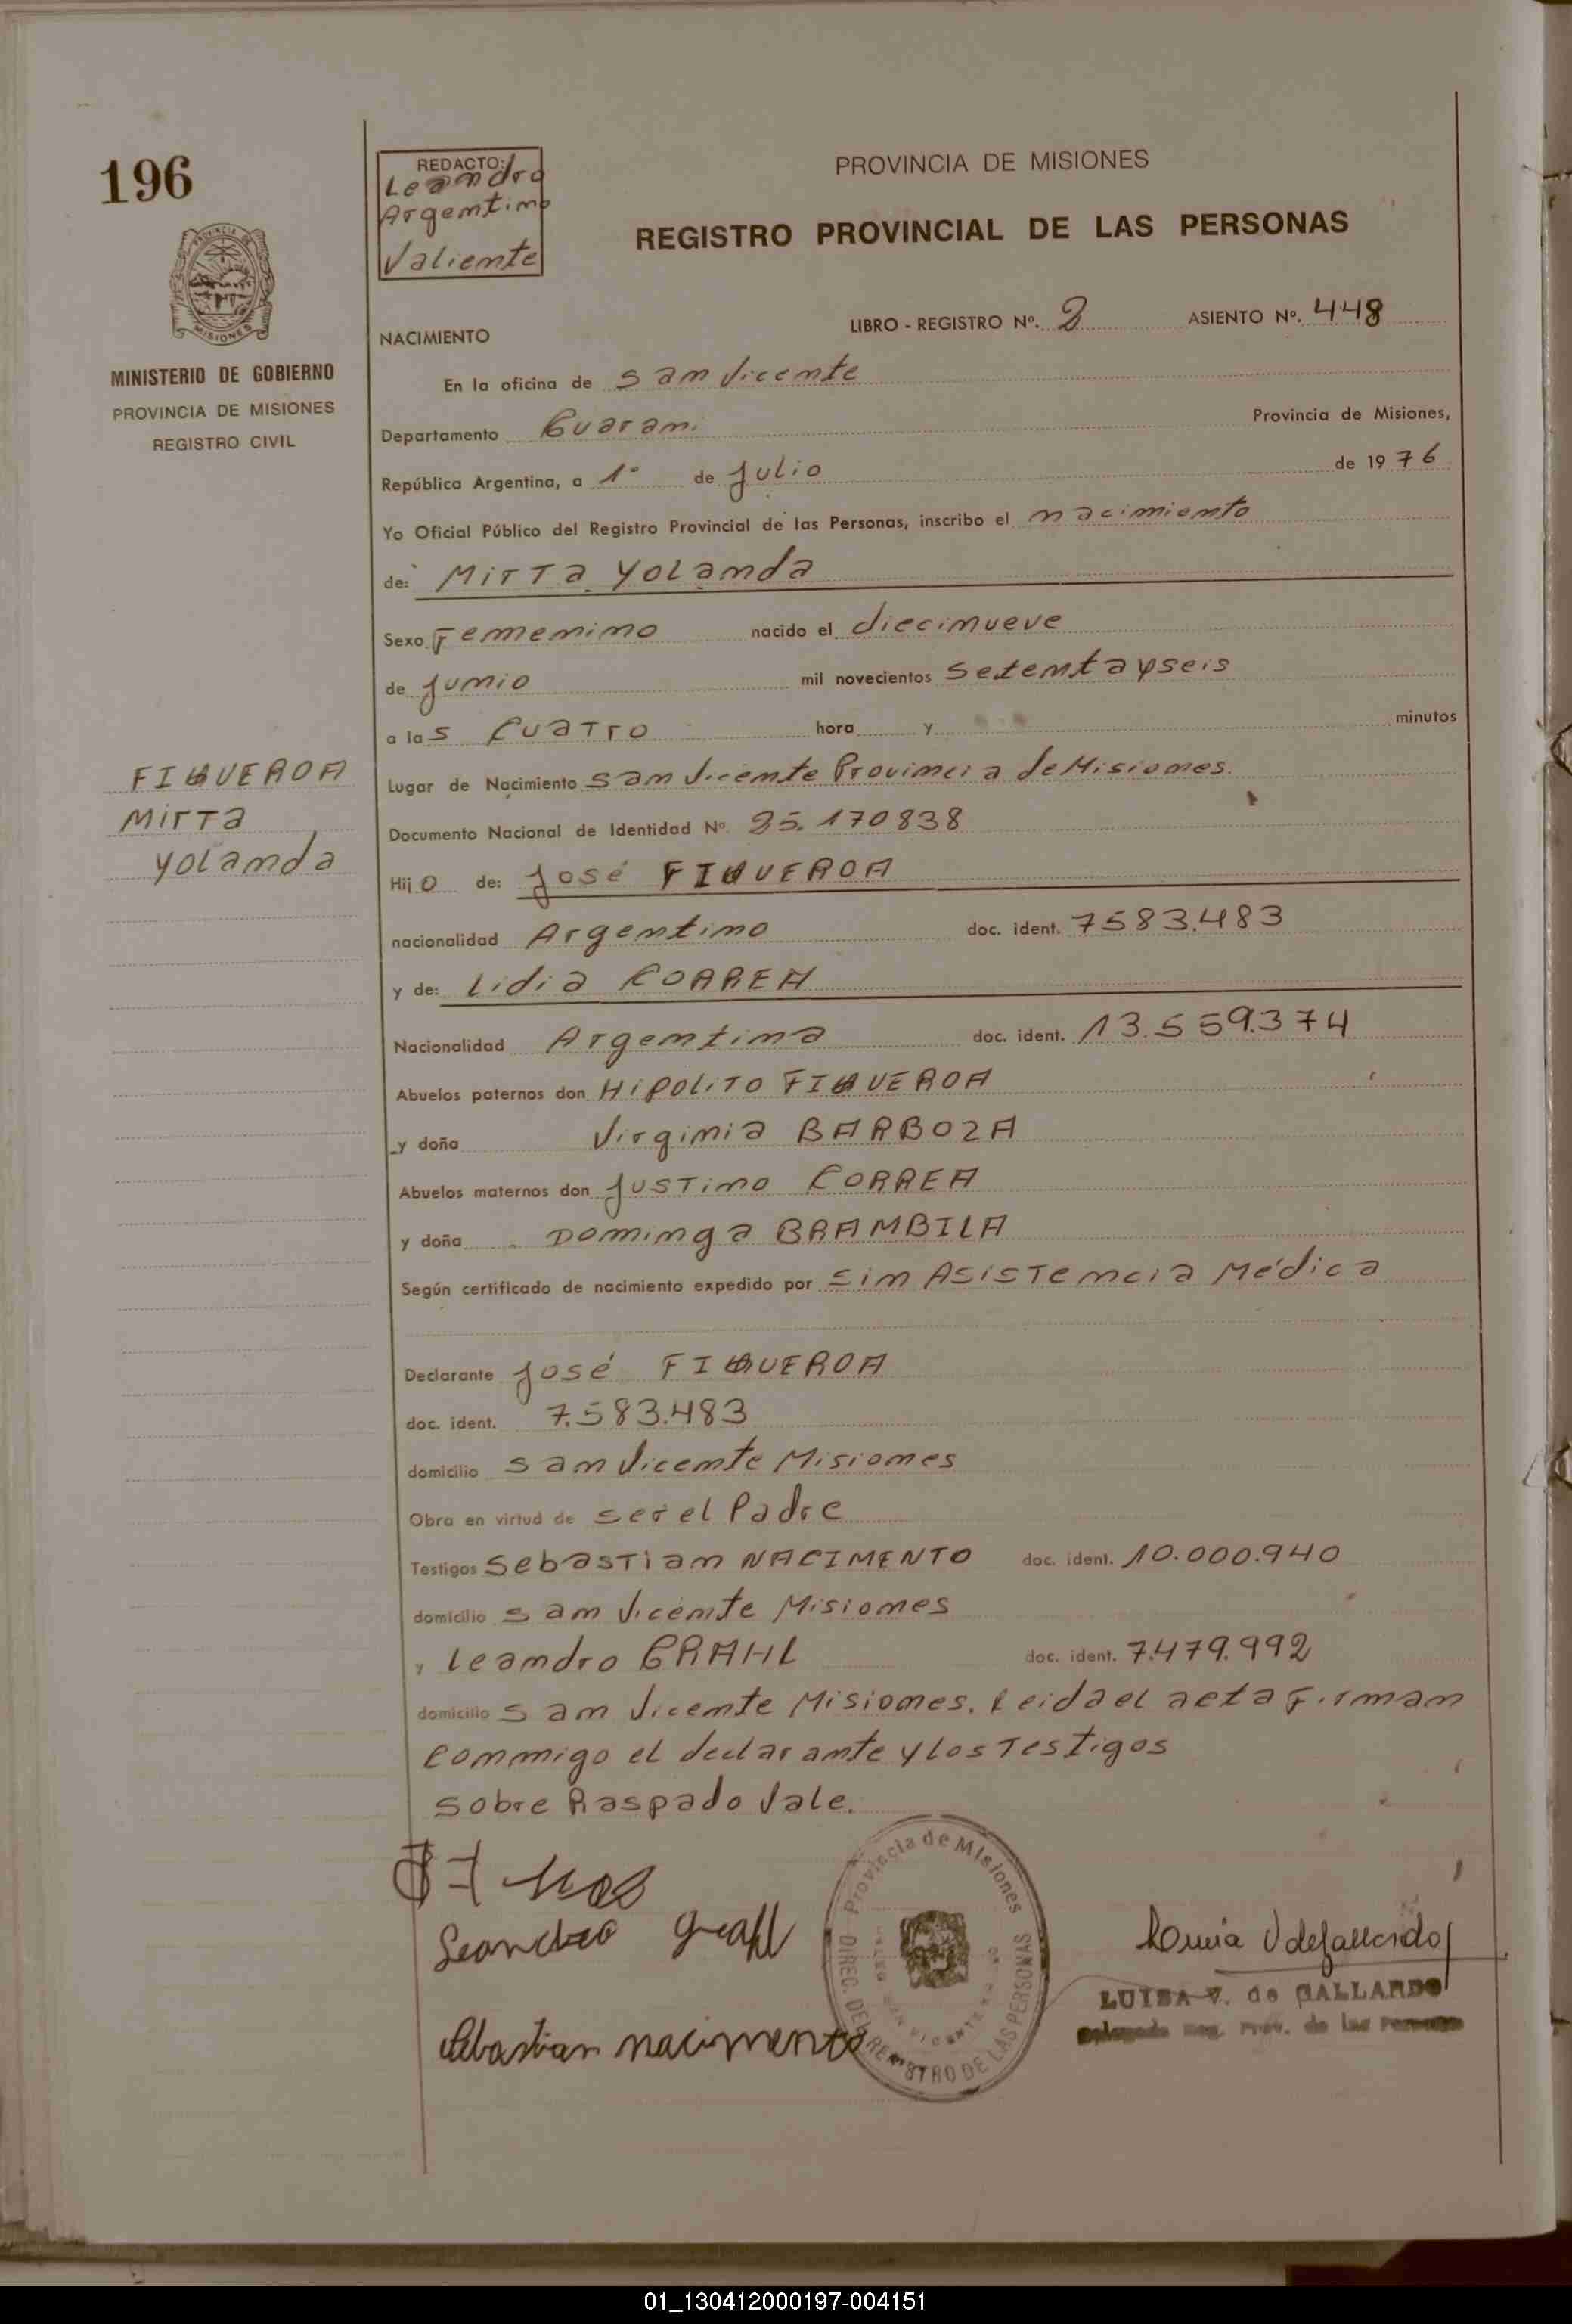 196
REDACTO:
Leandro
Argentino
Valiente
PROVINCIA DE MISIONES
REGISTRO PROVINCIAL DE LAS PERSONAS
PROVINCIA DE
MISIONES
MINISTERIO DE GOBIERNO
PROVINCIA DE MISIONES
REGISTRO CIVIL
NACIMIENTO LIBRO - REGISTRO Nº. 2 ASIENTO Nº. 448
En la oficina de San Vicente
Departamento Guarani Provincia de Misiones,
República Argentina, a 1º de Julio de 1976
Yo Oficial Público del Registro Provincial de las Personas, inscribo el nacimiento
de: Mirta Yolanda
Sexo Femenino nacido el diecinueve
de Junio mil novecientos setenta y seis
a las Cuatro hora y minutos
FIGUEROA
Mirta
Yolanda
Lugar de Nacimiento San Vicente Provincia de Misiones.
Documento Nacional de Identidad Nº 25.170838
Hijo de: José FIGUEROA
nacionalidad Argentino doc. ident. 7583.483
y de: Lidia CORREA
Nacionalidad Argentina doc. ident. 13.559.374
Abuelos paternos don Hipolito FIGUEROA
y doña Virginia BARBOZA
Abuelos maternos don Justino CORREA
y doña Dominga BRAMBILA
Según certificado de nacimiento expedido por Sin Asistencia Médica
Declarante José FIGUEROA
doc. ident. 7.583.483
domicilio San Vicente Misiones
Obra en virtud de ser el Padre
Testigos Sebastian NACIMENTO doc. ident. 10.000.940
domicilio San Vicente Misiones
y Leandro GRAHL doc. ident. 7.479.992
domicilio San Vicente Misiones. Leida el acta Firman
Conmigo el declarante y los Testigos
Sobre Raspado Vale.
Leandro Grahl
Sebastian nacimento
Provincia de Misiones
DIREC. DEL REGISTRO DE LAS PERSONAS
LUISA V. de GALLARDO
Delegada Reg. Prov. de las Personas
01_130412000197-004151